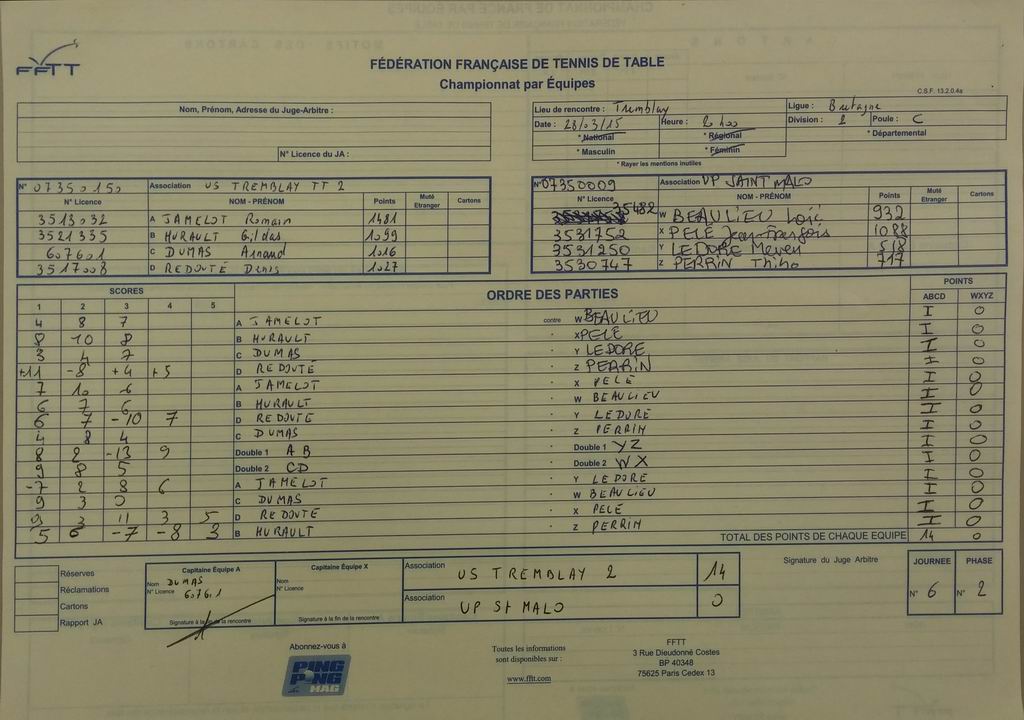 FFTT
FÉDÉRATION FRANÇAISE DE TENNIS DE TABLE
Championnat par Équipes
C.S.F. 13.2.0.4a
Nom, Prénom, Adresse du Juge-Arbitre :
N° Licence du JA :
Lieu de rencontre : Tremblay Ligue : Bretagne
Date : 28/03/15 Heure : 2h00 Division : 2 Poule : C
* National * Régional * Départemental
* Masculin * Féminin
* Rayer les mentions inutiles
N° 07350150 Association US TREMBLAY TT 2
N° Licence NOM - PRÉNOM Points Muté Etranger Cartons
3513032 A JAMELOT Romain 1481
3521335 B HURAULT Gildas 1099
607601 C DUMAS Arnaud 1016
3517008 D REDOUTÉ Denis 1027
N° 07350009 Association UP SAINT MALO
N° Licence NOM - PRÉNOM Points Muté Etranger Cartons
35482 W BEAULIEU Loïc 932
3531752 X PELE Jean-François 1088
3531250 Y LEDORE Meven 518
3530747 Z PERRIN Thibo 717
SCORES ORDRE DES PARTIES POINTS
1 2 3 4 5 ABCD WXYZ
4 8 7 A JAMELOT contre W BEAULIEU I 0
8 10 8 B HURAULT X PELE I 0
3 4 7 C DUMAS Y LEDORE I 0
+11 -8 +4 +5 D REDOUTÉ Z PERRIN I 0
7 10 6 A JAMELOT X PELÉ I 0
6 7 6 B HURAULT W BEAULIEU I 0
6 7 -10 7 D REDOUTE Y LEDORÉ I 0
4 8 4 C DUMAS Z PERRIN I 0
8 2 -13 9 Double 1 A B Double 1 YZ I 0
9 8 5 Double 2 CD Double 2 WX I 0
-7 2 8 6 A JAMELOT Y LEDORÉ I 0
9 3 0 C DUMAS W BEAULIEU I 0
3 11 3 5 D REDOUTE X PELÉ I 0
5 6 -7 -8 3 B HURAULT Z PERRIN I 0
TOTAL DES POINTS DE CHAQUE EQUIPE 14 0
Réserves
Réclamations
Cartons
Rapport JA
Capitaine Équipe A
Nom DUMAS
N° Licence 607601
Signature à la fin de la rencontre
Capitaine Équipe X
Nom
N° Licence
Signature à la fin de la rencontre
Association US TREMBLAY 2 14
Association UP St MALO 0
Signature du Juge Arbitre
JOURNEE PHASE
N° 6 N° 2
Abonnez-vous à
PING PONG MAG
Toutes les informations
sont disponibles sur :
www.fftt.com
FFTT
3 Rue Dieudonné Costes
BP 40348
75625 Paris Cedex 13